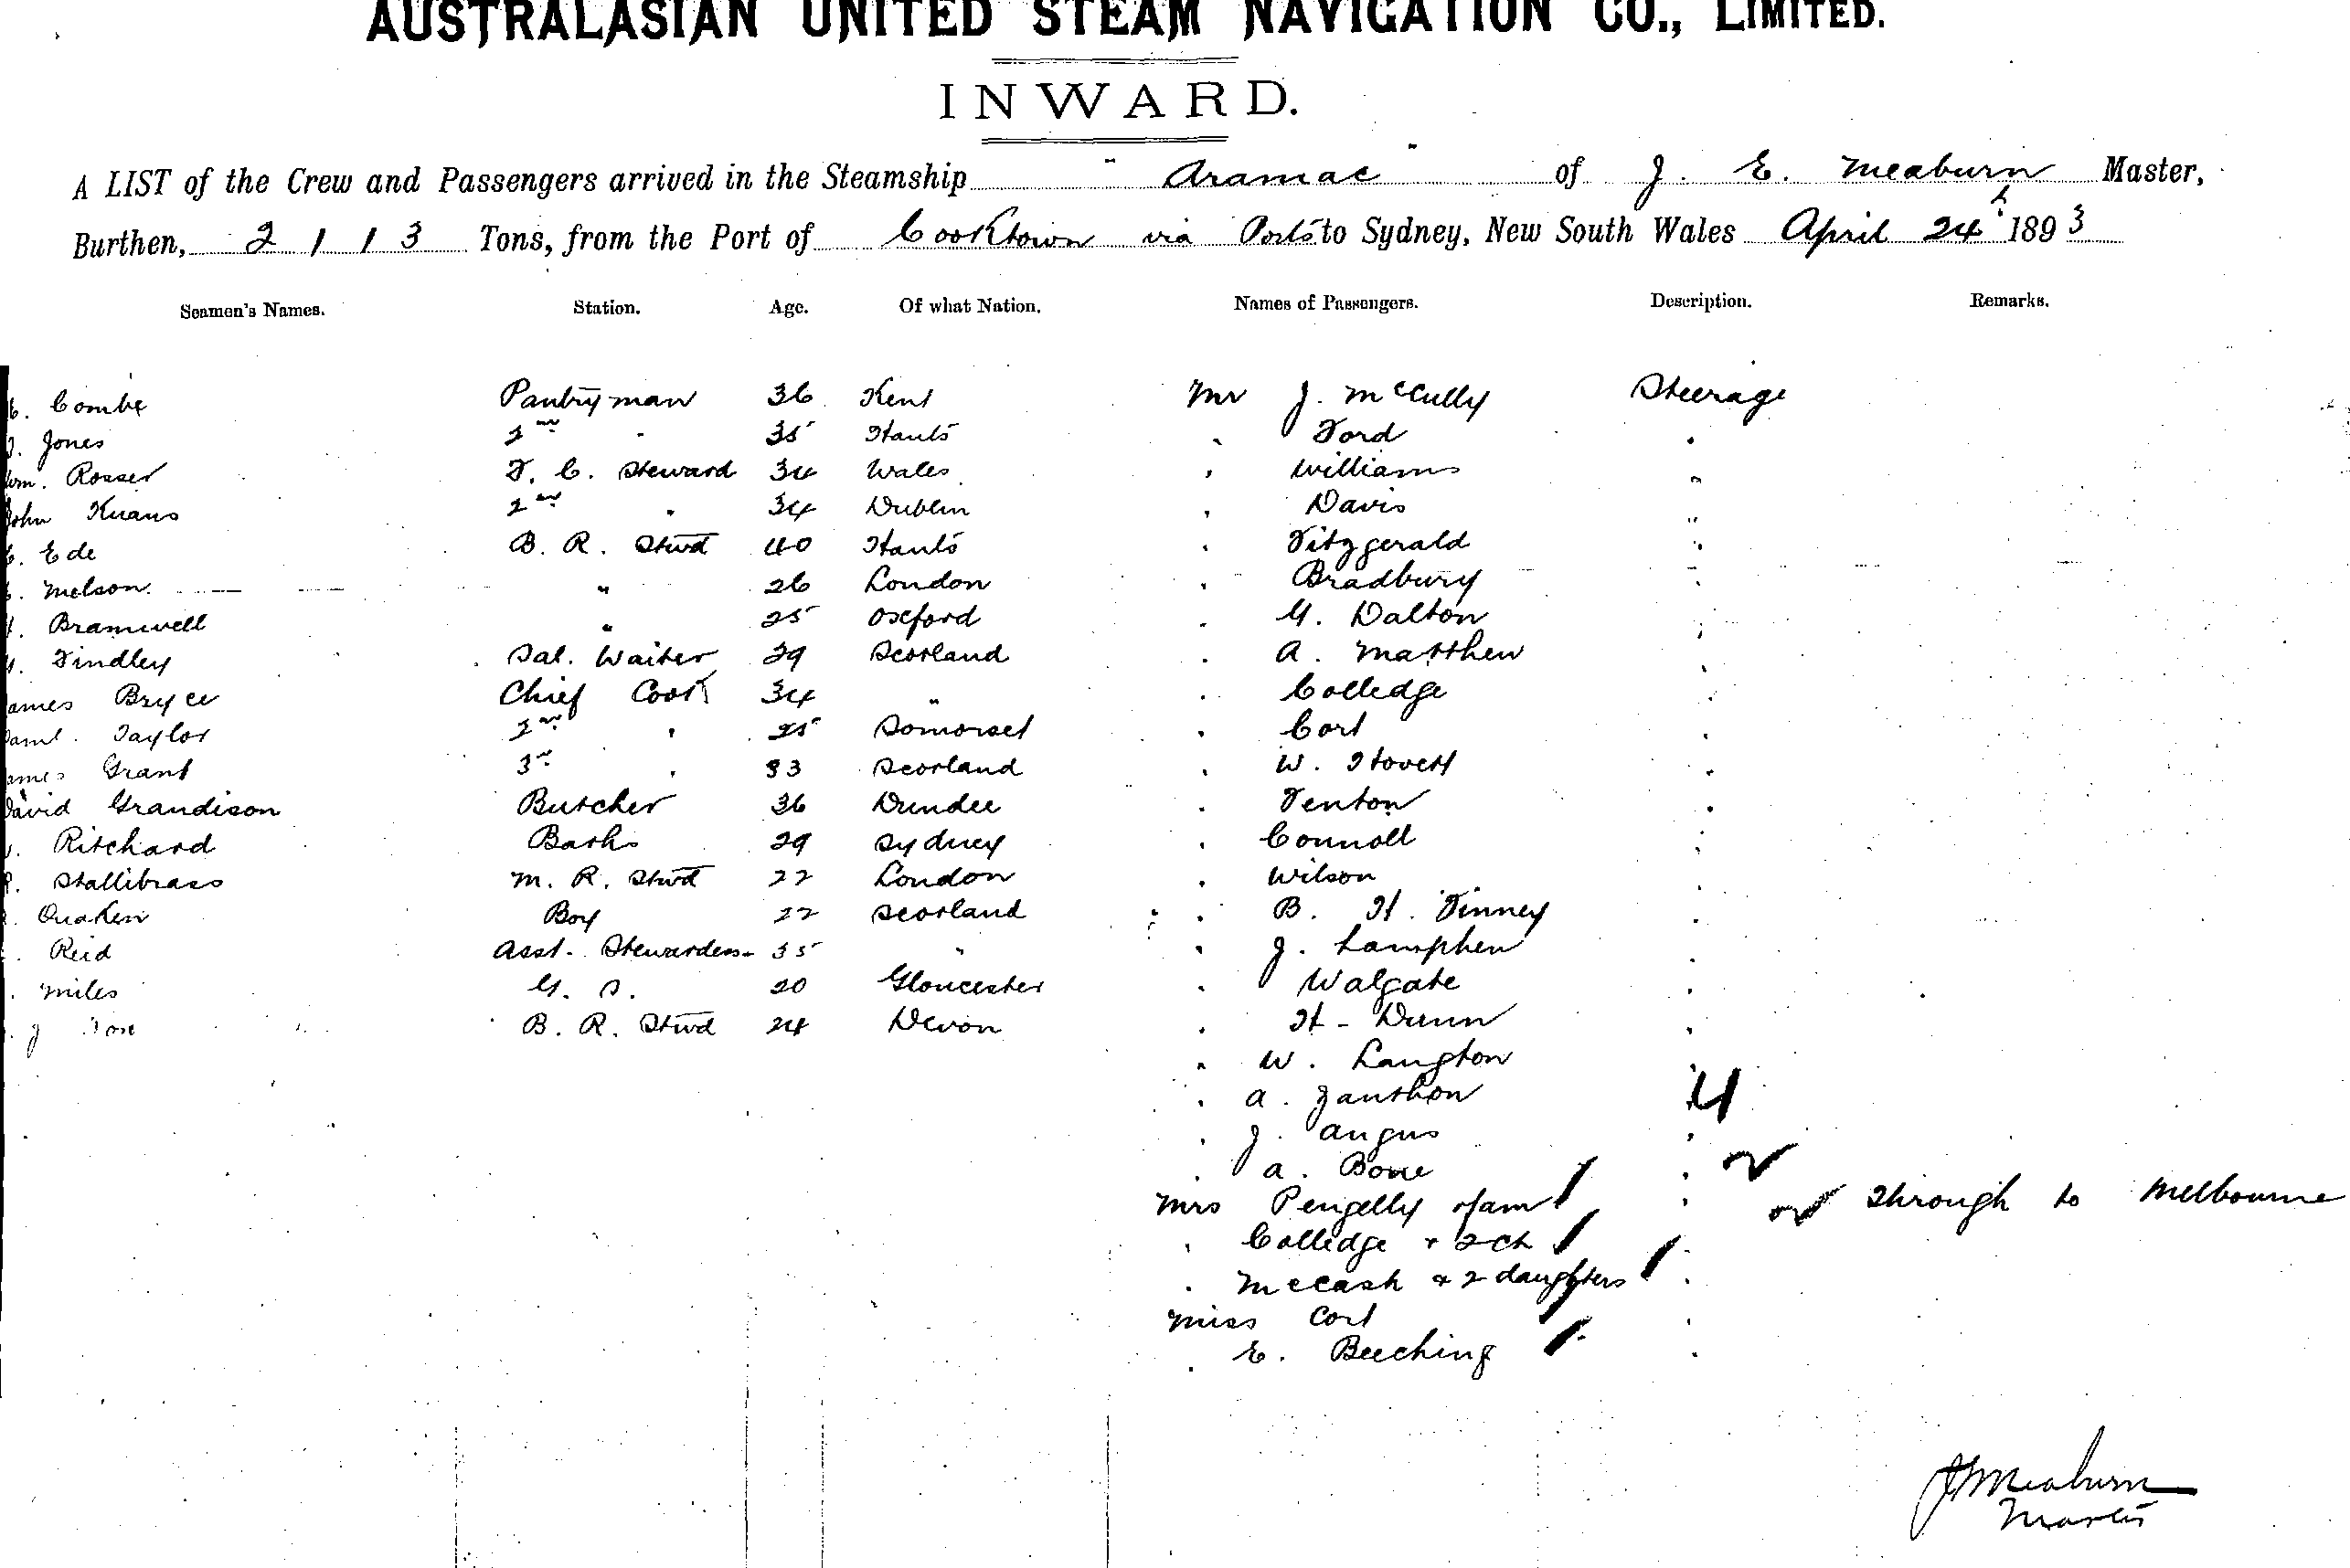 AUSTRALASIAN UNITED STEAM NAVIGATION CO., LIMITED.
INWARD.
A LIST of the Crew and Passengers arrived in the Steamship "Aramac" of J. E. Meaburn Master,
Burthen, 2113 Tons, from the Port of Cooktown via Ports to Sydney, New South Wales April 24th 1893
Seamen's Names. Station. Age. Of what Nation. Names of Passengers. Description. Remarks.
Combe Pantryman 36 Kent Mr J. McCully Steerage
Jones 2nd " 35 Hants " Ford "
Wm. Rosser F. C. Steward 34 Wales " Williams "
John 2nd " 34 Dublin " Davis "
Ede B. R. Stwd 40 Hants " Fitzgerald "
Melson " 26 London " Bradbury "
Bramwell " 25 Oxford " G. Dalton "
Findley Sal. Waiter 29 Scotland " A. Matthew "
James Bryce Chief Cook 34 " " Colledge "
Saml. Taylor 2nd " 25 Somerset " Cort "
James Grant 3rd " 33 Scotland " W. "
David Grandison Butcher 36 Dundee " Fenton "
Ritchard Baths 29 Sydney " Connoll "
Stallibrass M. R. Stwd 22 London " Wilson
Quaken Boy 22 Scotland " B. H. Finney "
Reid Asst. Stewardess 35 " " J. Lamphen "
Miles G. S. 20 Gloucester " Walgate "
J B. R. Stwd 24 Devon " H. Dunn "
" W. Langton
" A. "
" J. Angus "
" A. Bone "
Mrs Pengelly & fam " Through to Melbourne
" Colledge + 2 ch
" McCash & 2 daughters "
Miss Cort "
" E. Beeching "
J E Meaburn
Master